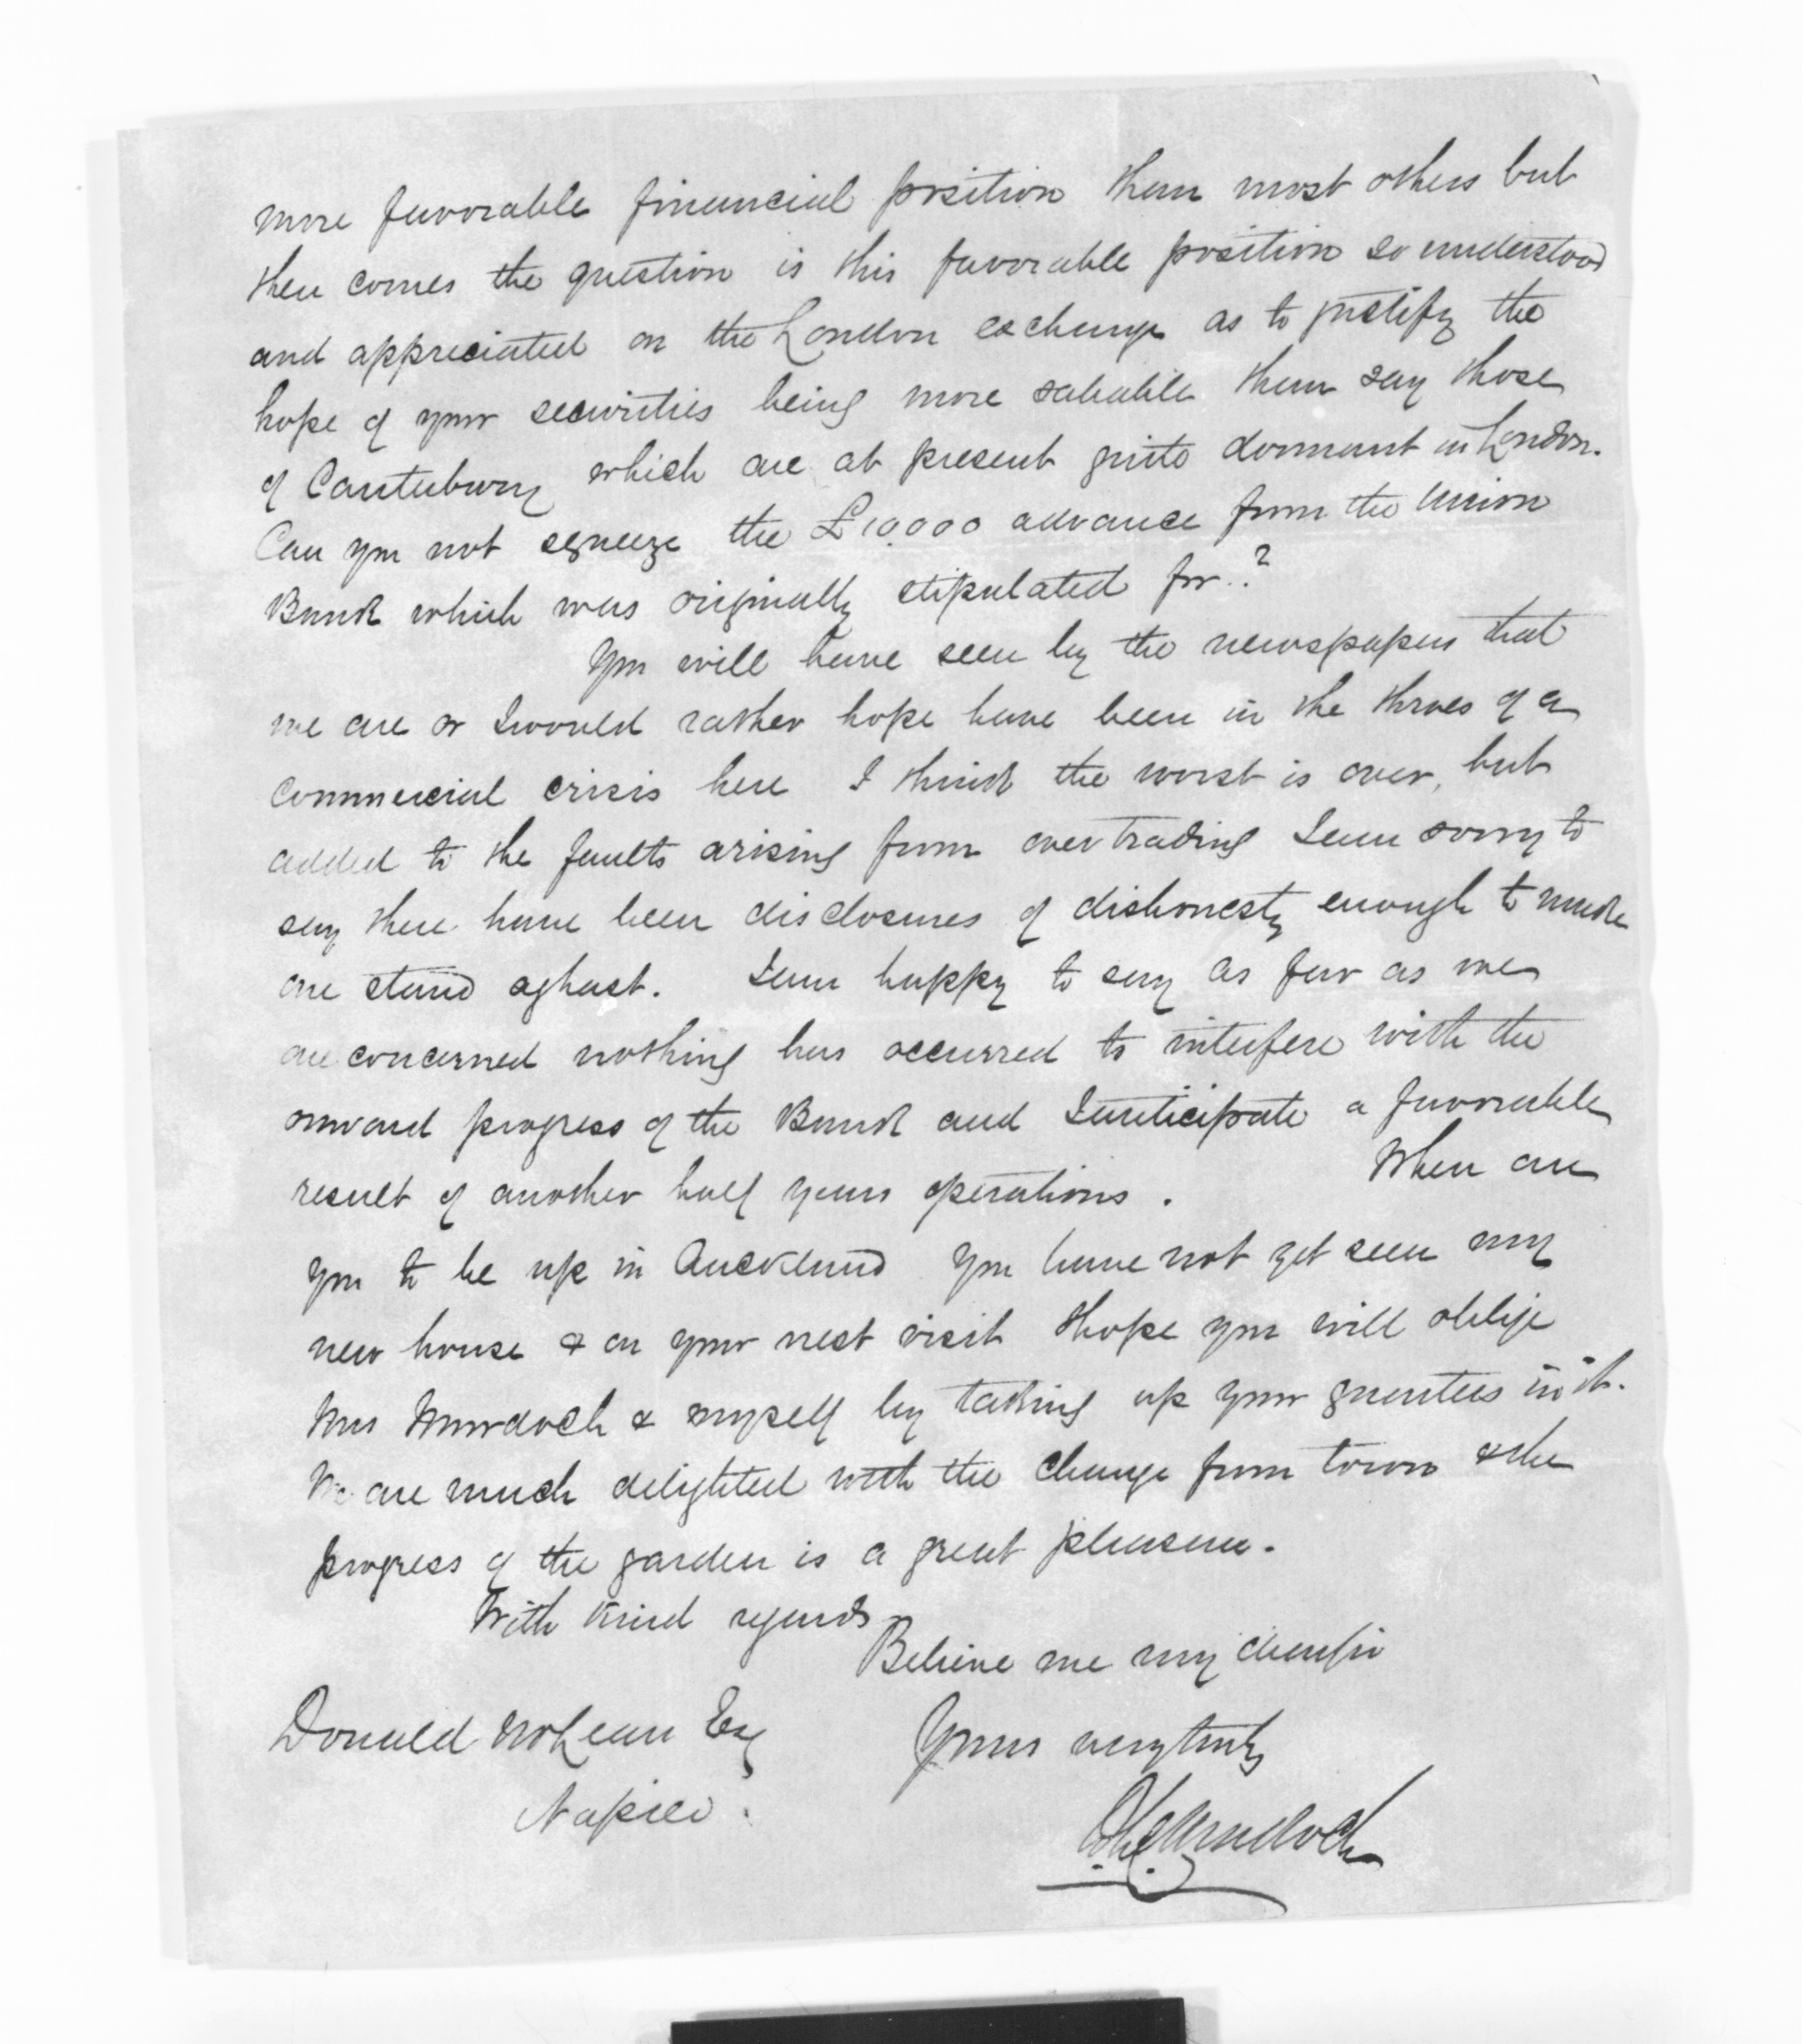 more favorable financial position than most others but
then comes the question is this favorable position so understood
and appreciated on the London exchange as to justify the
hope of your securities being more saleable than say those
of Canterbury which are at present quite dormant in London.
Can you not squeeze the £10,000 advance from the Union
Bank which was originally stipulated for?
You will have seen by the newspapers that
we are or I would rather hope have been in the throes of a
commercial crisis here I think the worst is over, but
added to the faults arising from over trading I am sorry to
say there have been disclosures of dishonesty enough to make
one stand aghast. I am happy to say as far as we
are concerned nothing has occurred to interfere with the
onward progress of the Bank and I anticipate a favorable
result of another half years operations. When are
you to be up in Auckland you have not yet seen my
new house & on your next visit I hope you will oblige
Mrs Murdoch & myself by taking up your quarters in it.
We are much delighted with the change from town & the
progress of the garden is a great pleasure.
With kind regards
Believe me my dear Sir
Donald McLean Esq
Yours very truly
Napier.
D. Murdoch